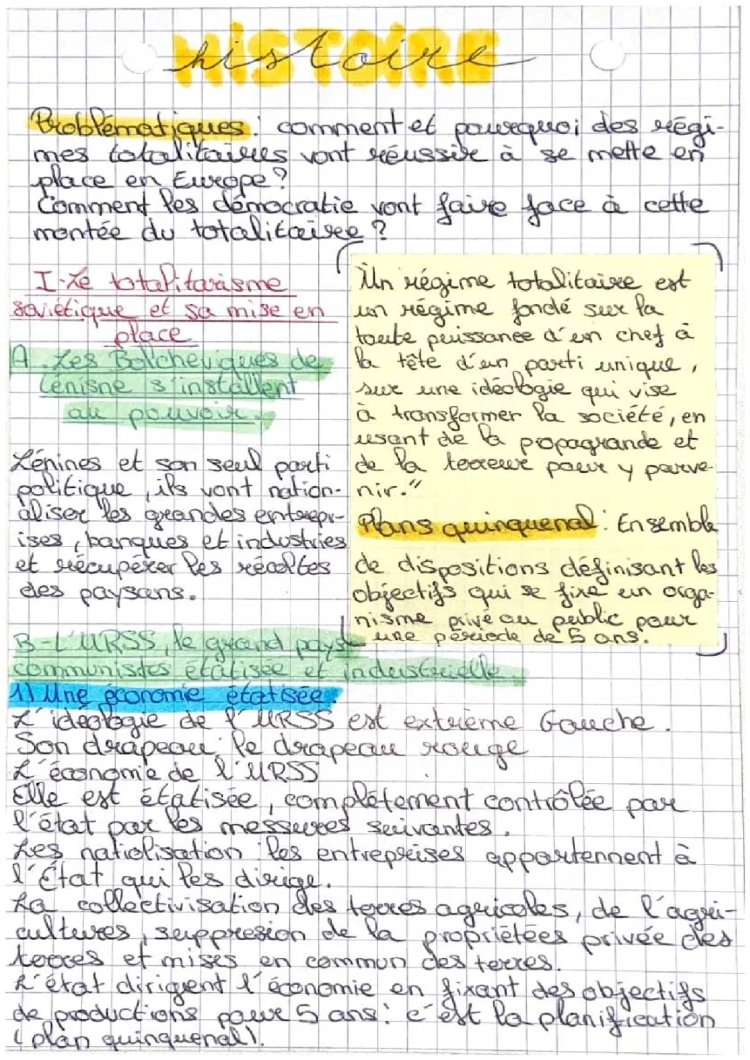 histoire
Problématiques : comment et pourquoi des régi-
mes totalitaires vont réussir à se mette en
place en Europe ?
Comment les démocratie vont faire face à cette
montée du totalitairee ?
I- Le totalitarisme
soviétique et sa mise en
place
A. Les Bolcheviques de
Lénisne s'installent
au pouvoir.
Lénines et son seul parti
politique, ils vont nation-
aliser les grandes entrepr-
ises, banques et industries
et récupérer les récoltes
des paysans.
Un régime totalitaire est
un régime fondé sur la
toute puissance d'un chef à
la tête d'un parti unique,
sur une idéologie qui vise
à transformer la société, en
usant de la propagrande et
de la terreur pour y parve-
nir."
Plans quinquenal : Ensemble
de dispositions définisant les
objectifs qui se fixe un orga-
nisme privé ou public pour
une période de 5 ans.
B- L'URSS, le grand pays
communistes étatisée et industrielle.
1) Une économie étatisée
L'idéologie de l'URSS est extrème Gauche.
Son drapeau : le drapeau rouge
L'économie de l'URSS
Elle est étatisée, complétement contrôlée par
l'état par les messures suivantes.
Les natiolisation : les entreprises appartennent à
l'État qui les dirige.
La collectivisation des terres agricoles, de l'agri-
cultures, suppresion de la propriétées privée des
terres et mises en commun des terres.
L'état dirigent l'économie en fixant des objectifs
de productions pour 5 ans : c'est la planification
(plan quinquenal).